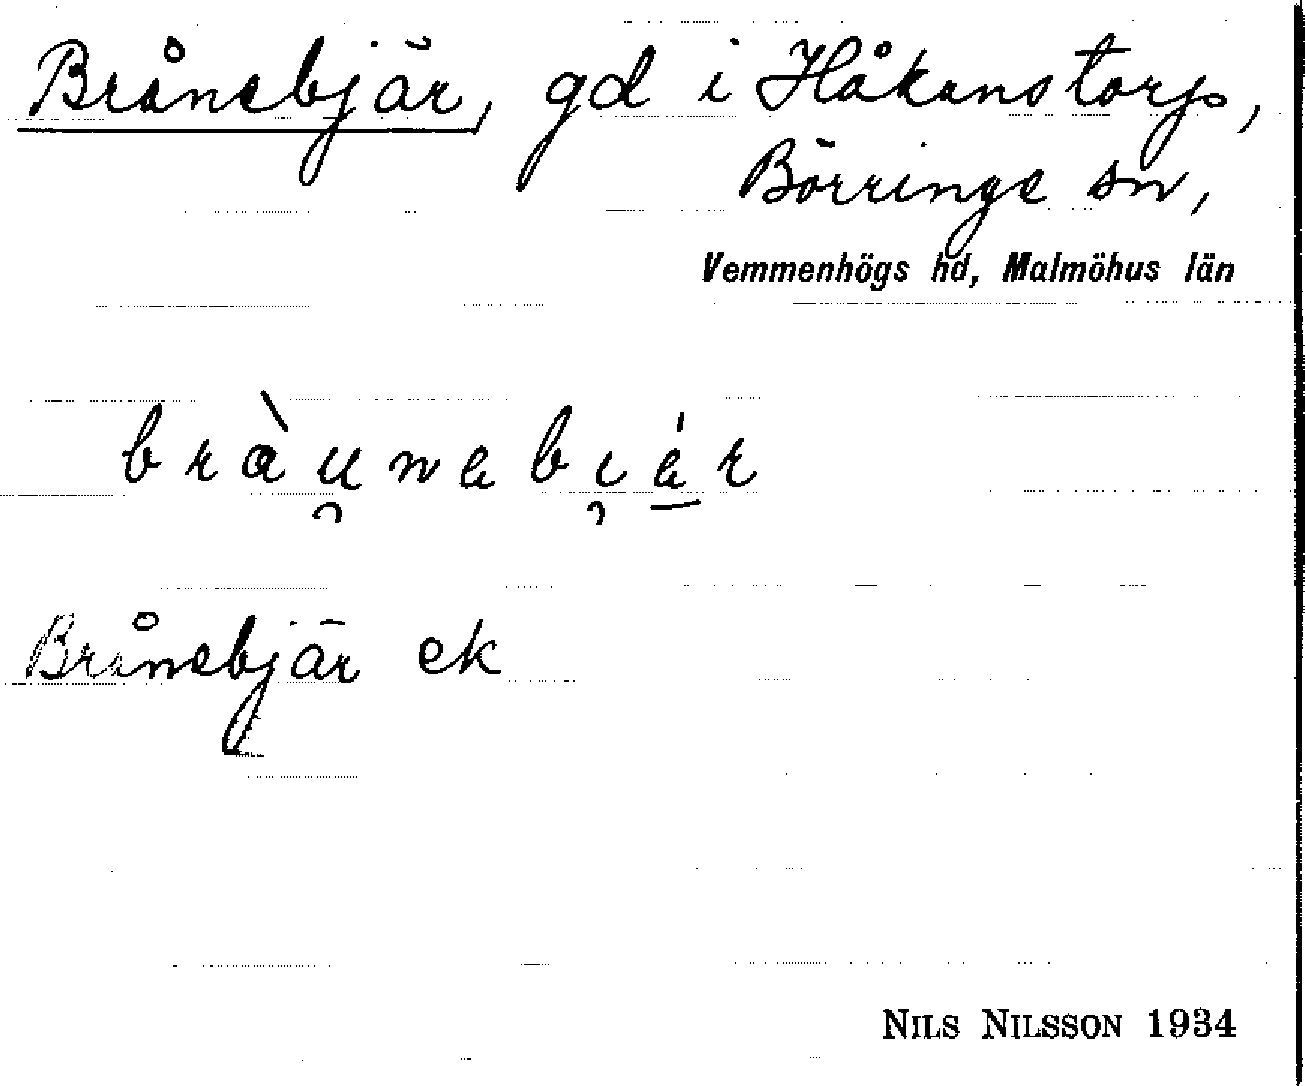 Brånebjär, gd i Håkanstorp,
Börringe sn,
Vemmenhögs hd, Malmöhus län
bràu̯nabi̯ér
Brånebjär ek
NILS NILSSON 1934